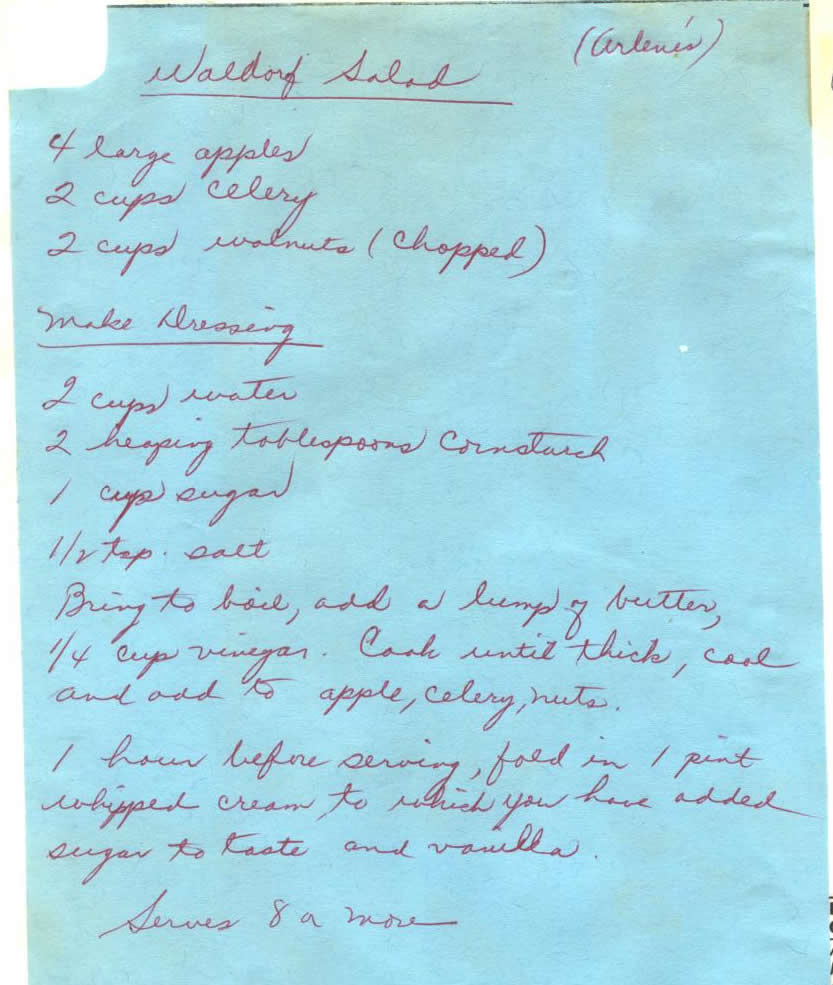 Waldorf Salad (Arlene's)
4 large apples
2 cups celery
2 cups walnuts (chopped)
Make Dressing
2 cups water
2 heaping tablespoons cornstarch
1 cup sugar
1/2 tsp. salt
Bring to boil, add a lump of butter,
1/4 cup vinegar. Cook until thick, cool
and add to apple, celery, nuts.
1 hour before serving, fold in 1 pint
whipped cream, to which you have added
sugar to taste and vanilla.
Serves 8 or more